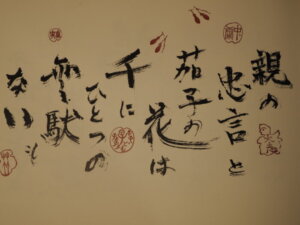 親の
忠言と
茄子の
花は
千に
ひとつの
無駄
ない